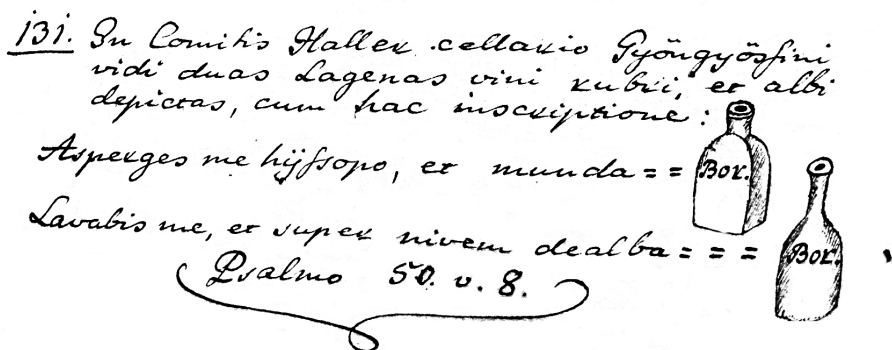 131. In Comitis Haller cellario Gyöngyösfini
vidi duas Lagenas vini rubri, et albi
depictas, cum hac inscriptione:
Asperges me hÿssopo, et munda = = Bor.
Lavabis me, et super nivem dealba = = = Bor.
Psalmo 50. v. 8.